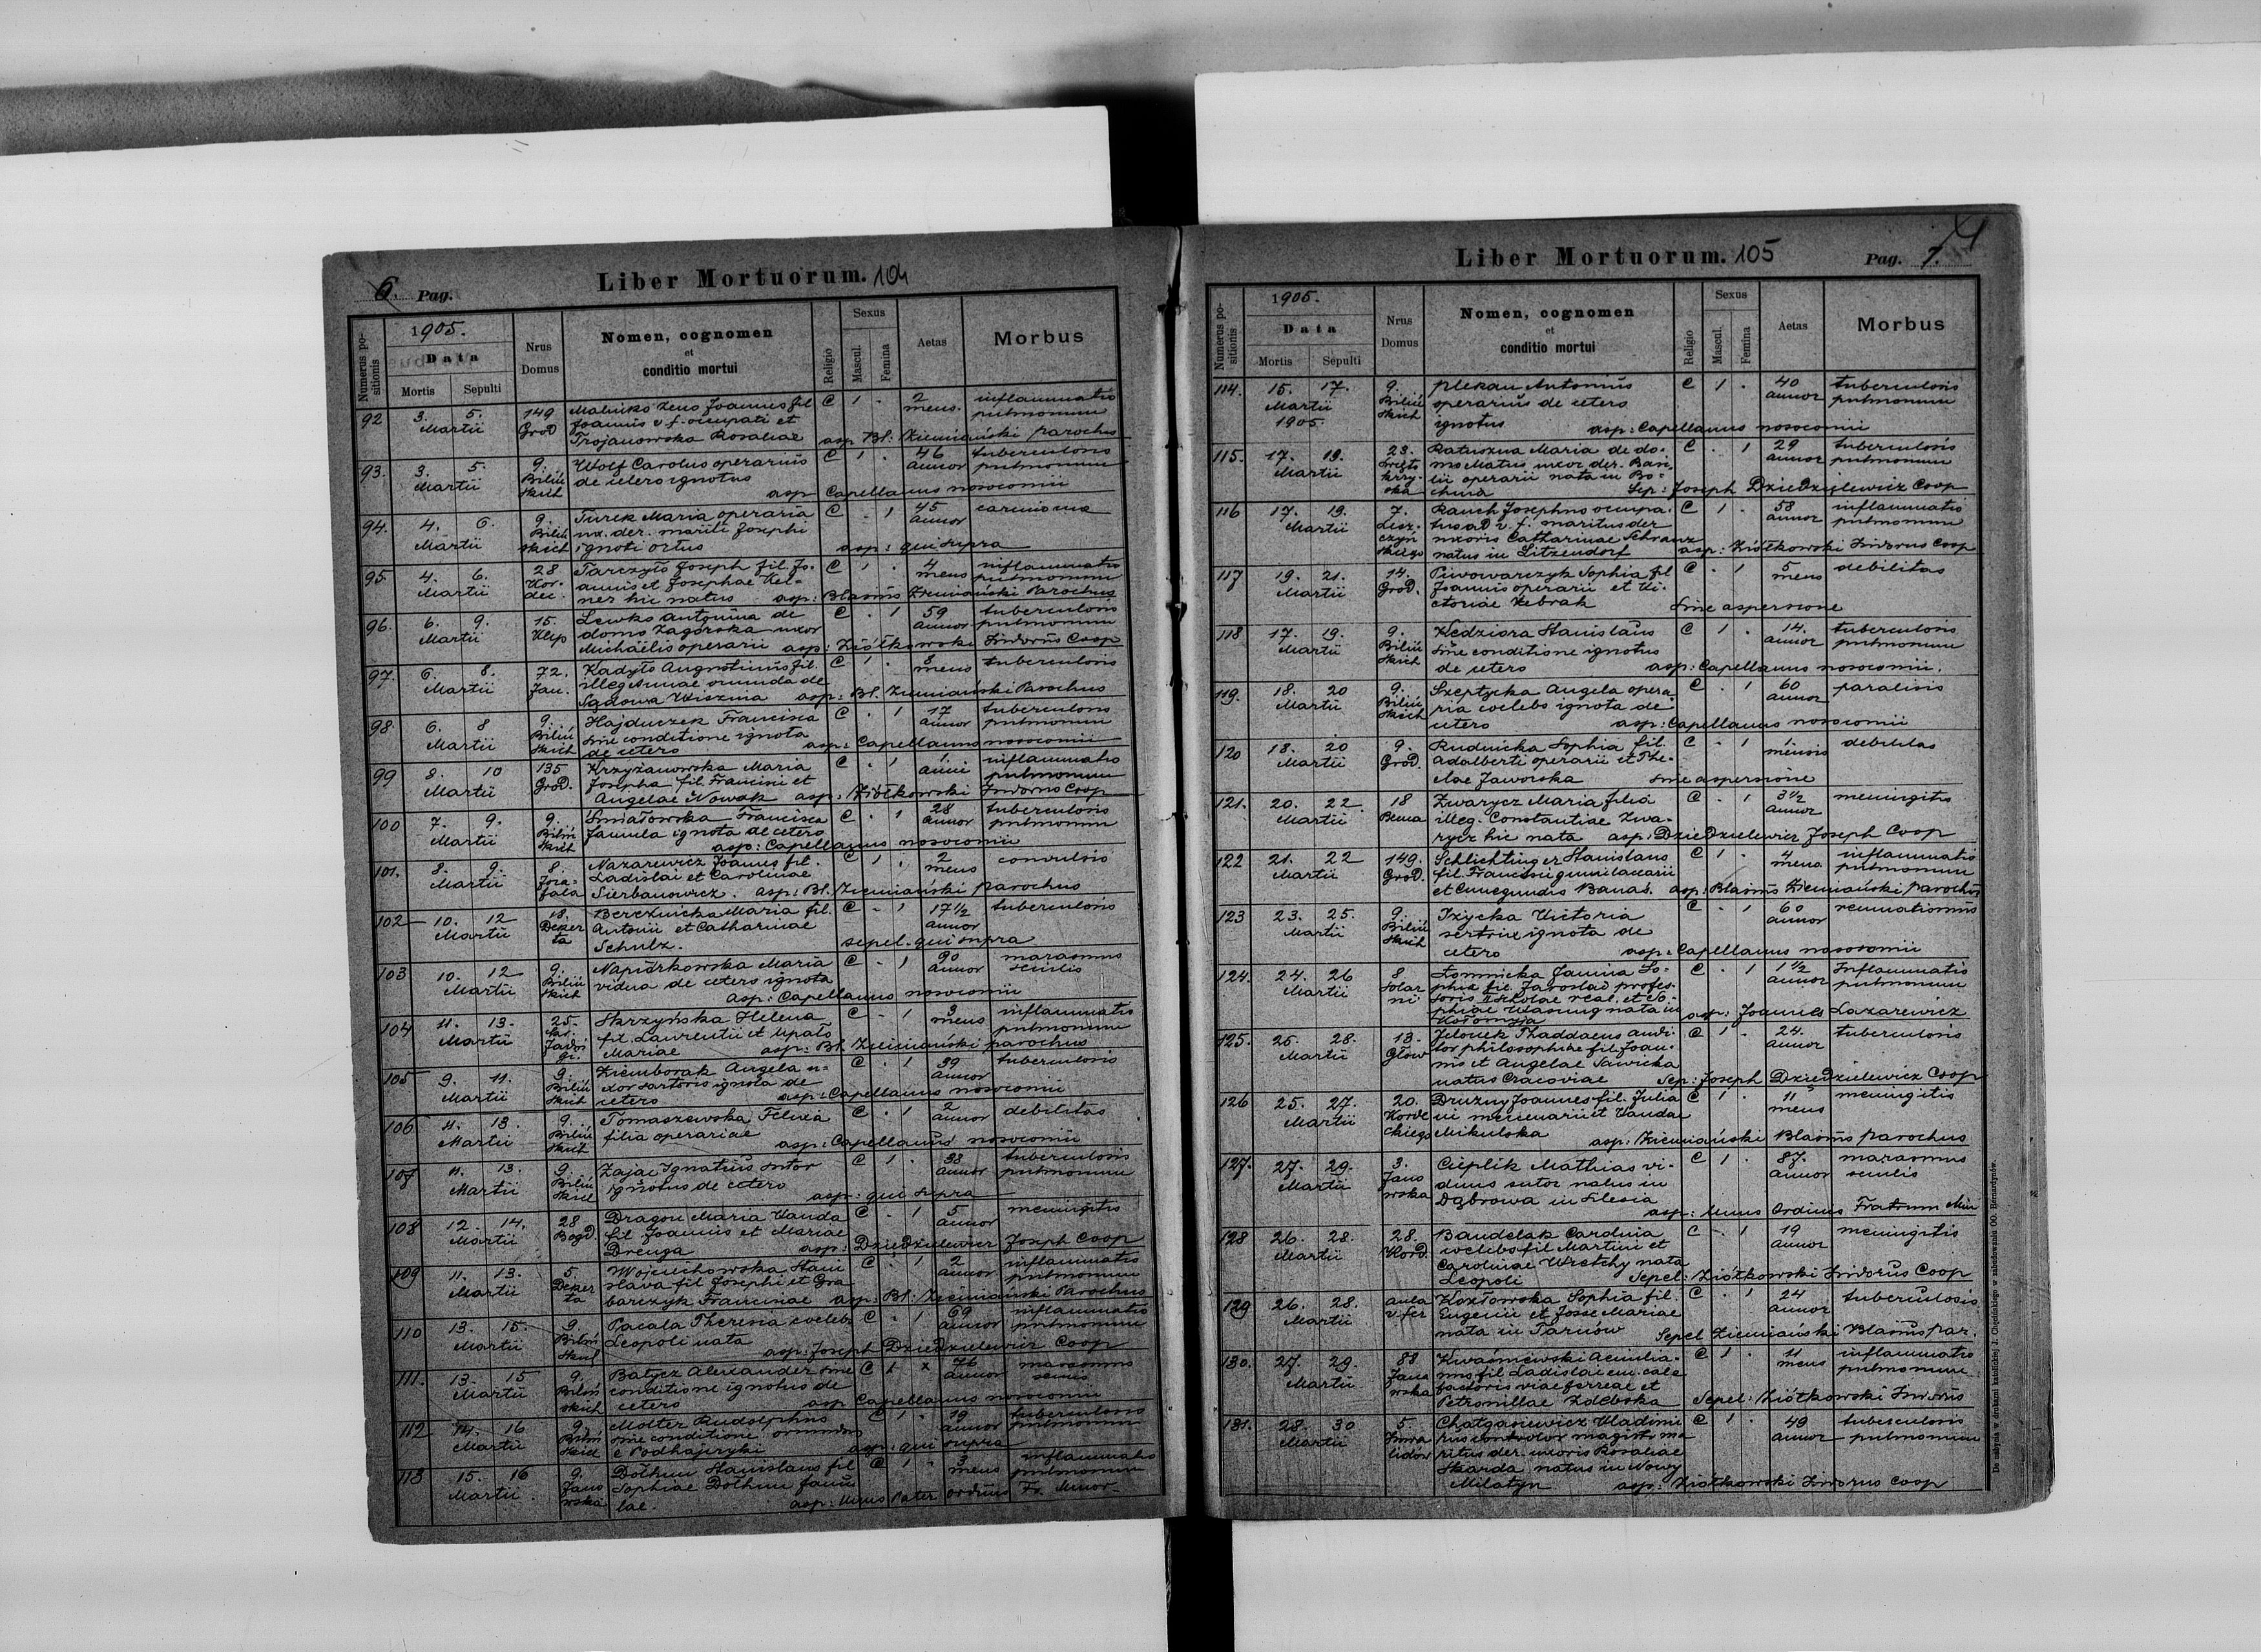 6. Pag.
Liber Mortuorum. 104
Numerus positionis
1905.
Data
Mortis Sepulti
Nrus Domus
Nomen, cognomen
et
conditio mortui
Religio
Sexus
Mascul. Femina
Aetas
Morbus
92 3. 5. 149 Malinko Zeno Joannes fil C 1 - 2 inflammatio
Martii Grod Joannis v. f. occupati et mens. pulmonum
Trojanowska Rosaliae asp Bl: Ziemiański parochus
93. 3. 5. 9. Wolf Carolus operarius C 1 - 46 tuberculosis
Martii Biliń de cetero ignotus annor pulmonum
skich asp Capellanus nosocomii
94. 4. 6. 9. Turek Maria operaria C - 1 45 carcinoma
Martii Biliń ux. der. mariti Josephi annor
skich ignoti ortus asp: qui supra
95. 4. 6. 28 Tarczyło Joseph fil. Jo- C 1 - 4 inflammatio
Martii Kor- annis et Josephae Kel- mens pulmonum
dec. ner hic natus asp: Blasius Ziemiański Parochus
96. 6. 9. 15. Lewko Antonina de C - 1 59 tuberculosis
Martii Klep domo Zagórska uxor annor pulmonum
Michaëlis operarii asp: Ziółkowski Isidorus Coop
97. 6. 8. 72. Kadyło Augustinus fil. C 1 - 8 tuberculosis
Martii Jan. illeg. Annae oriunda de mens
Sądowa Wisznia asp: Bl. Ziemiański Parochus
98. 6. 8 9. Hajduczek Francisca C - 1 17 tuberculosis
Martii Biliń sine conditione ignota annor pulmonum
skich de cetero asp: Capellanus nosocomii
99 8. 10 135 Krzyżanowska Maria C - 1 1 inflammatio
Martii Grod. Josepha fil. Francisci et anni pulmonum
Angelae Nowak asp: Ziółkowski Isidorus Coop
100 7. 9. 9. Śmiałowska Francisca C - 1 28 tuberculosis
Martii Biliń famula ignota de cetero annor pulmonum
skich asp: Capellanus nosocomii
101. 8. 9. 8. Nazarewicz Joannes fil. C 1 - 2 convulsio
Martii Ladislai et Carolinae mens
Sierbanowicz. asp: Bl. Ziemiański parochus
102 10. 12 18. Bereznicka Maria fil. C - 1 17 1/2 tuberculosis
Martii Dezer Antonii et Catharinae annor
ta Schulz. sepel. qui supra
103 10. 12 9. Napiórkowska Maria C - 1 90 marasmus
Martii Biliń vidua de cetero ignota annor senilis
skich asp: Capellanus nosocomii
104 11. 13. 25. Skrzyńska Helena C - 1 3 inflammatio
Martii fil. Laurentii et Upało mens pulmonum
Mariae asp: Bl. Ziemiański parochus
105 9. 11. 9. Ziemborak Angela u- C - 1 39 tuberculosis
Martii Biliń xor sartoris ignota de annor
skich cetero asp: Capellanus nosocomii
106 11. 13. 9. Tomaszewska Felixa C - 1 2 debilitas
Martii Biliń filia operariae annor
skich asp: Capellanus nosocomii
107 11. 13. 9. Zając Ignatius sutor C 1 - 38 tuberculosis
Martii Biliń ignotus de cetero annor pulmonum
skich asp: qui supra
108 12. 14. 28 Dragon Maria Wanda C - 1 5 meningitis
Martii Bogd. fil Joannis et Mariae annor
Drenga asp: Dziedzielewicz Joseph Coop
109 11. 13. 5 Wojciechowska Stani C - 1 2 inflammatio
Martii Dezer slava fil Josephi et Gra annor pulmonum
ta barczyk Franciscae asp: Bl: Ziemiański Parochus
110 13. 15. 9. Pacała Theresia coelebs C - 1 69 inflammatio
Biliń Leopoli nata annor pulmonum
skich asp: Joseph Dziedzielewicz Coop
111. 13. 15 9. Batycz Alexander sine C 1 x 76 marasmus
Martii Biliń conditione ignotus de annor senilis
skich cetero asp Capellanus nosocomii
112 14. 16 9. Molter Rudolphus C 1 - 19 tuberculosis
Martii Biliń sine conditione oriundus annor pulmonum
skich e Podhajczyki asp: qui supra
113 15. 16 9. Dołhun Stanislaus fil C 1 - 3 inflammatio
Martii. Jano Sophiae Dołhun famu mens pulmonum
wska lae. asp: Unus Pater ordinis Fr. Minor
Liber Mortuorum. 105
Pag. 7.
Numerus positionis
1905.
Data
Mortis Sepulti
Nrus Domus
Nomen, cognomen
et
conditio mortui
Religio
Sexus
Mascul. Femina
Aetas
Morbus
114. 15. 17. 9. Plekan Antonius C 1 - 40 tuberculosis
Martii Biliń operarius de cetero annor pulmonum
1905. skich ignotus asp: Capellanus nosocomii
115. 17. 19. 23. Ratuszna Maria de do- C - 1 29 tuberculosis
Martii mo Matus uxor der. Basi annor pulmonum
lii operarii nata in Bo-
chnia Sep: Joseph Dziedzielewicz Coop
116 17. 19. 7. Rauch Josephus occupa- C 1 - 58 inflammatio
Martii Lesz- tus ad v. f. maritus der annor pulmonum
czyń uxoris Catharinae Schranz
skiego natus in Litzendorf asp: Ziółkowski Isidorus Coop
117 19. 21. 14. Piwowarczyk Sophia fil C - 1 5 debilitas
Martii Grod. Joannis operarii et Vi- mens
ctoriae Żebrak Sine aspersione
118 17. 19. 9. Kędziora Stanislaus C 1 - 14. tuberculosis
Martii Biliń sine conditione ignotus annor pulmonum
skich de cetero asp: Capellanus nosocomii.
119. 18. 20 9. Szeptycka Angela opera- C - 1 60 paralisis
Martii Biliń ria coelebs ignota de annor
skich cetero asp: Capellanus nosocomii
120 18. 20 9. Rudnicka Sophia fil. C - 1 1. debilitas
Martii Grod. Adalberti operarii et The- mensis
clae Jaworska sine aspersione
121. 20. 22 18 Zwarycz Maria filia C - 1 3 1/2 meningitis
Martii Bema illeg. Constantiae Zwa- annor
rycz hic nata asp: Dziedzielewicz Joseph Coop
122 21. 22 149. Schlichtinger Stanislaus C 1 - 4 inflammatio
Martii Grod. fil. Francisci mens pulmonum
et Cunegundis Banas. asp: Blasius Ziemiański parochus
123 23. 25. 9. Izycka Victoria C - 1 60 reumatismus
Martii Biliń sertrix ignota de annor
skich cetero asp: Capellanus nosocomii
124. 24. 26 8 Łomnicka Janina So- C - 1 1 1/2 Inflammatio
Martii Solar phia fil. Jaroslai profes- annor pulmonum
nii soris II scholae real. et So-
phiae Wasung nata in
Kołomyja asp: Joannes Lazarewicz
125. 26. 28. 13. Jelonek Thaddaeus audi- C 1 - 24. tuberculosis
Martii Głow tor philosophiae fil Joan- annor
nis et Angelae Sawicka
natus Cracoviae Sep: Joseph Dziedzielewicz Coop
126 25. 27. 20. Druzny Joannes fil. Julia C 1 - 11 meningitis
Martii Korde ni mercenarii et Vandae mens
ckiego Mikulska asp: Ziemiański Blasius parochus
127. 27. 29. 3. Cieplik Mathias vi- C 1 - 87. marasmus
Martii Jano duus sutor natus in annor senilis
wska Dąbrowa in Silesia
asp: Unus Ordinis Fratrum Min
128 26. 28. 28. Bandelak Carolina C - 1 19 meningitis
Martii Kord. coelebs fil Martini et annor
Carolinae Wretchy nata
Leopoli Sepel: Ziółkowski Isidorus Coop
129 26. 28. aula Kozłowska Sophia fil. C - 1 24 tuberculosis
Martii v. fer Eugenii et Josse Mariae annor
nata in Tarnów Sepel Ziemiański Blasius par.
130. 27. 29. 88 Kwaśniewski Aemilia- C 1 - 11 inflammatio
Martii Jano nus fil Ladislai em. cale mens pulmonum
wska factoris viae ferreae et
Petronillae Zolebska Sepel: Ziółkowski Isidorus
131. 28. 30 5. Chatgasiewicz Vladimi C 1 - 49 tuberculosis
Martii Inwa rus controlor magistr ma annor pulmonum
lidów ritus der. uxoris Rosaliae
Skarda natus in Nowy
Milatyn asp: Ziółkowski Isidorus Coop
Do nabycia w drukarni katolickiej J. Chęcińskiego w zabudowaniu OO. Bernardynów.